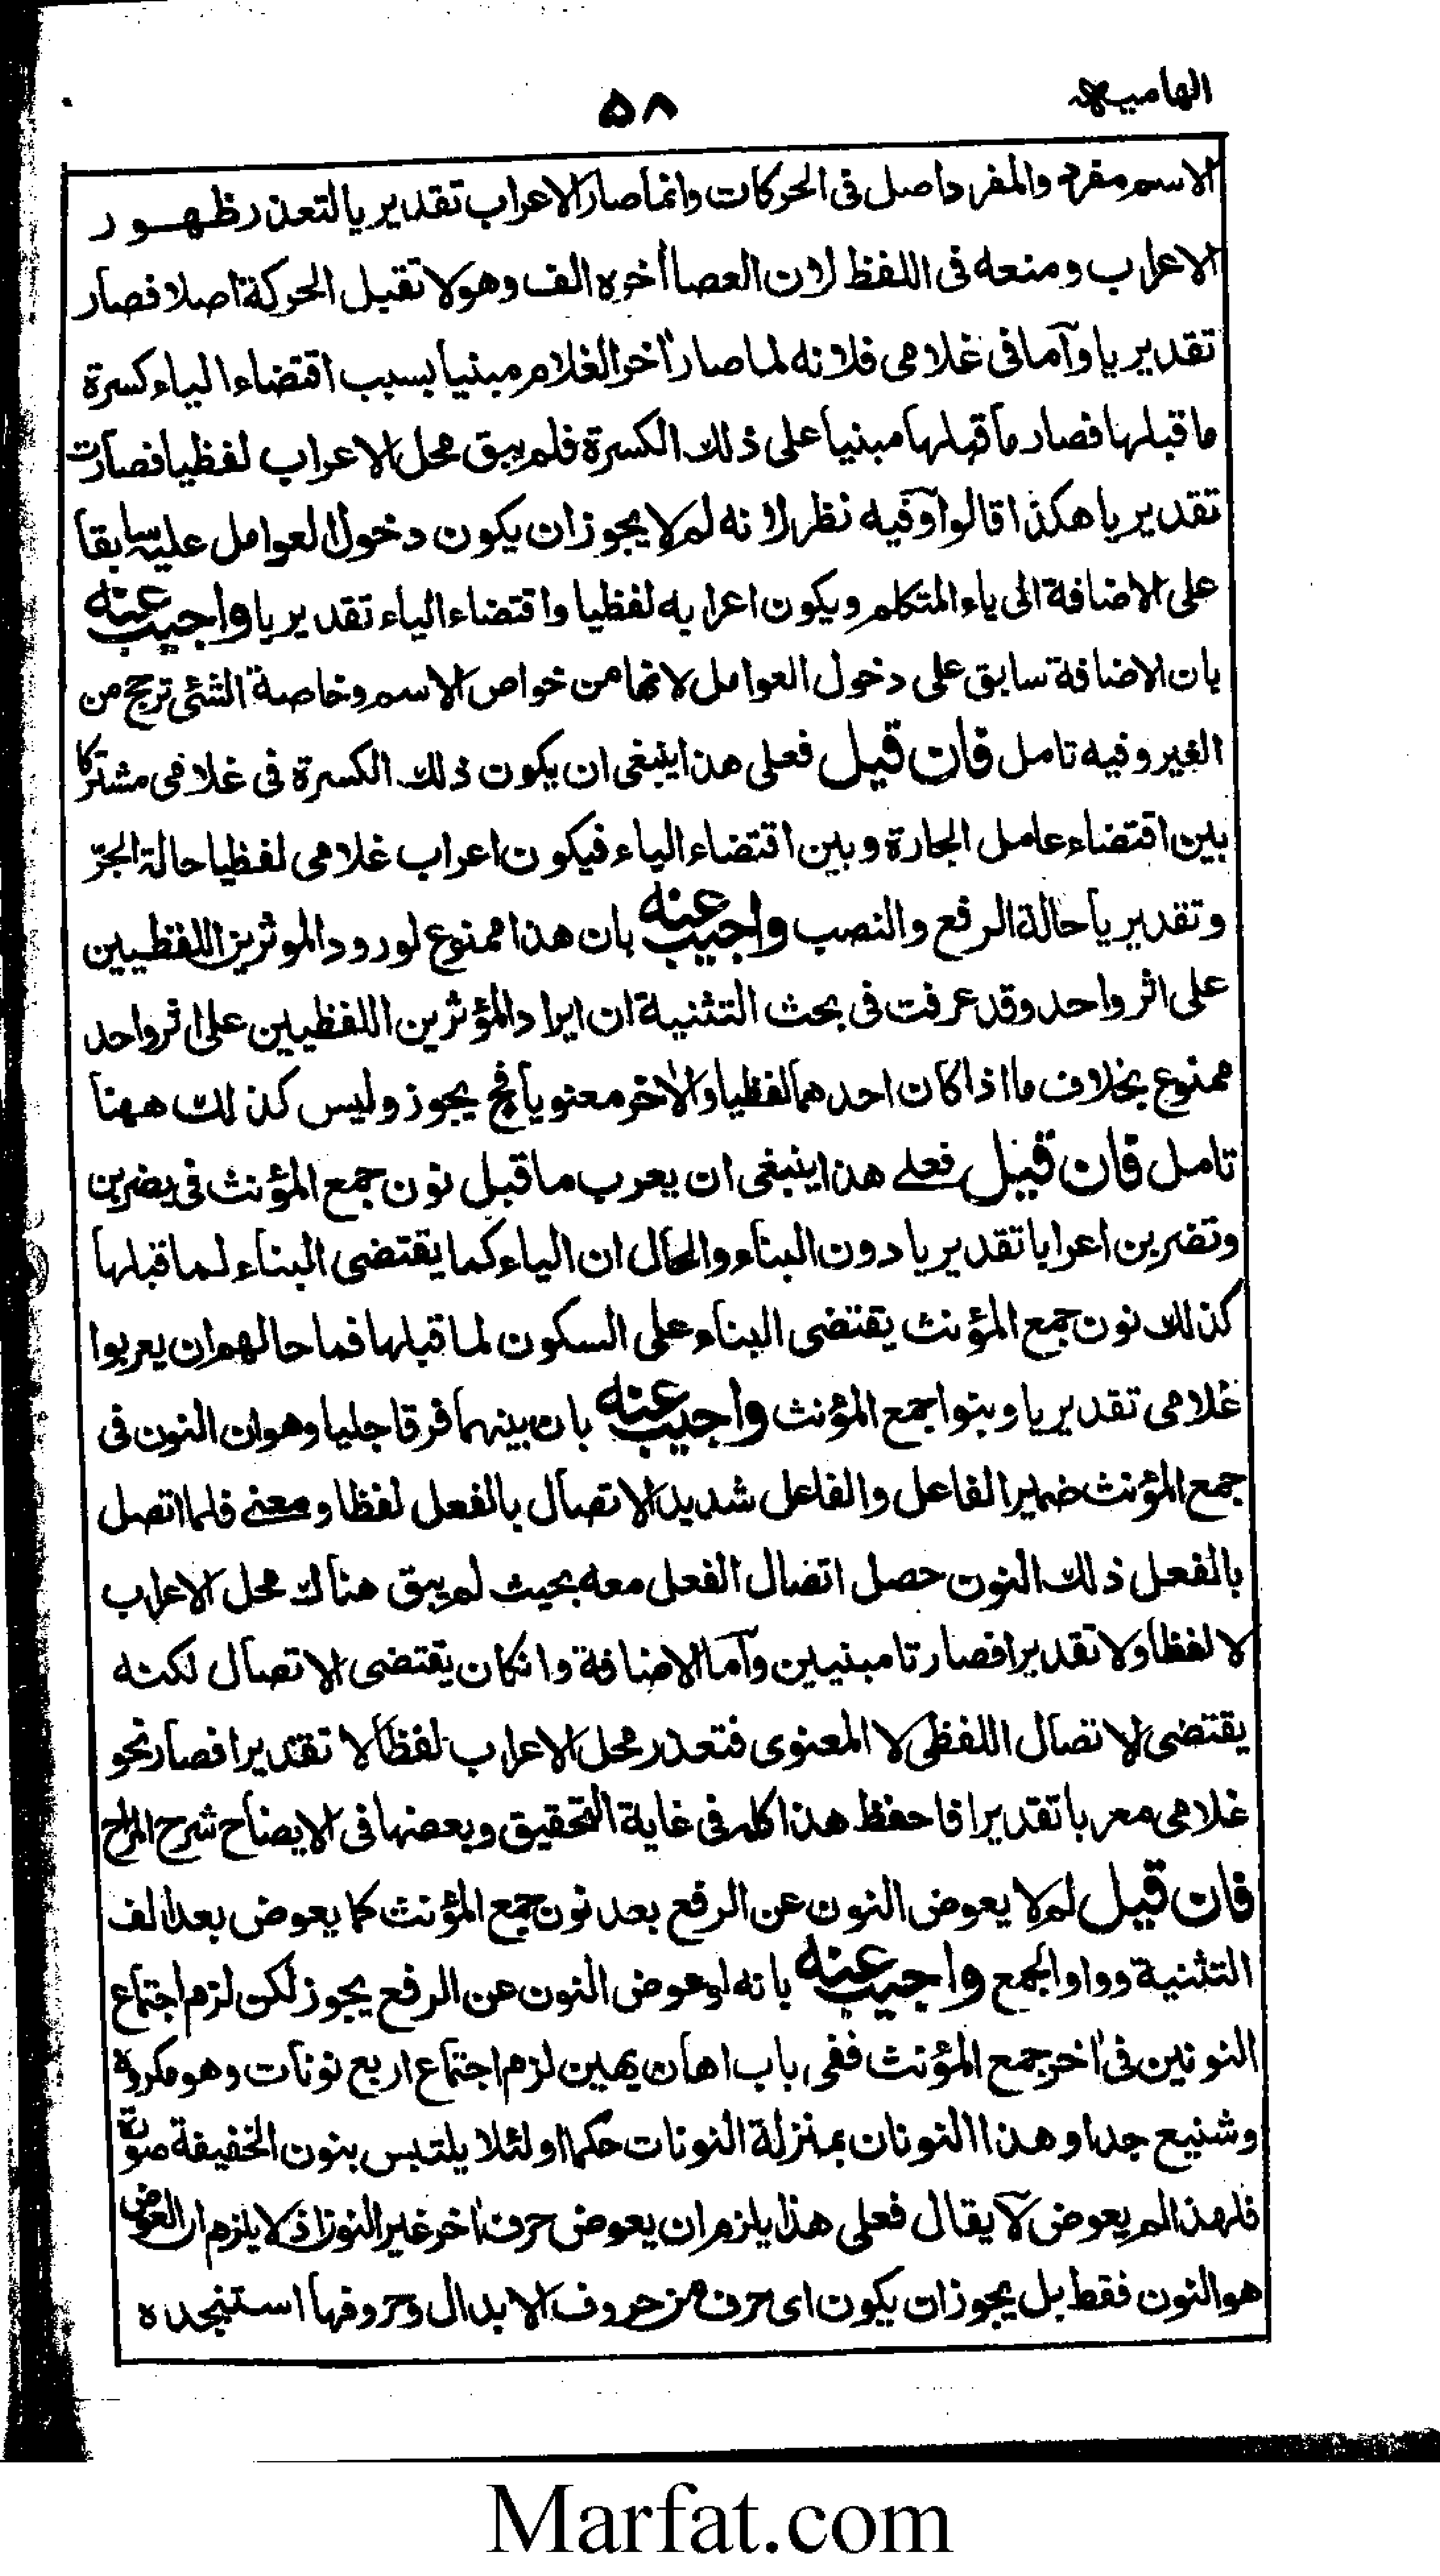 الهاميه
٥٨
الاسم مفرد والمفرد اصل فى الحركات وانما صار الاعراب تقديريا لتعذر ظهور
الاعراب ومنعه فى اللفظ لان العصا أخره الف وهو لا تقبل الحركة اصلا فصار
تقديريا وآما فى غلامى فلانه لما صار أخر الغلام مبنيا بسبب اقتضاء الياء كسرة
ما قبلها فصار ما قبلها مبنيا على ذلك الكسرة فلم يبق محل الاعراب لفظيا فصارت
تقديريا هكذا قالوا وفيه نظر لانه لم لا يجوز ان يكون دخول العوامل عليه سابقا
على الاضافة الى ياء المتكلم ويكون اعرابه لفظيا واقتضاء الياء تقديريا واجيب عنه
بان الاضافة سابق على دخول العوامل لانها من خواص الاسم وخاصة الشئى ترجح من
الغير وفيه تامل فان قيل فعلى هذا ينبغى ان يكون ذلك الكسرة فى غلامى مشتركا
بين اقتضاء عامل الجارة وبين اقتضاء الياء فيكون اعراب غلامى لفظيا حالة الجرّ
وتقديريا حالة الرفع والنصب واجيب عنه بان هذا ممنوع لورود الموثرين اللفظيين
على اثر واحد وقد عرفت فى بحث التثنية ان ايراد المؤثرين اللفظيين على اثر واحد
ممنوع بخلاف ما اذا كان احدهما لفظيا والأخر معنويا فح يجوز وليس كذلك ههنا
تامل فان قيل فعلے هذا ينبغى ان يعرب ما قبل نون جمع المؤنث فى يضربن
وتضربن اعرابا تقديريا دون البناء والحال ان الياء كما يقتضى البناء لما قبلها
كذلك نون جمع المؤنث يقتضى البناء على السكون لما قبلها فما حالهم ان يعربوا
غلامى تقديريا وبنوا جمع المؤنث واجيب عنه بان بينهما فرقا جليا وهو ان النون فى
جمع المؤنث ضمير الفاعل والفاعل شديد الاتصال بالفعل لفظا ومعنے فلما اتصل
بالفعل ذلك النون حصل اتصال الفعل معه بحيث لم يبق هناك محل الاعراب
لا لفظا ولا تقديرا فصارتا مبنيين وآما الاضافة وانكان يقتضى الاتصال لكنه
يقتضى الاتصال اللفظى لا المعنوى فتعذر محل الاعراب لفظا لا تقديرا فصار نحو
غلامى معربا تقديرا فاحفظ هذا كله فى غاية التحقيق وبعضها فى الايضاح شرح المراح
فان قيل لم لا يعوض النون عن الرفع بعد نون جمع المؤنث كما يعوض بعد الف
التثنية وواو الجمع واجيب عنه بانه لو عوض النون عن الرفع يجوز لكن لزم اجتماع
النونين فى أخر جمع المؤنث ففى باب اهان يهين لزم اجتماع اربع نونات وهو مكروه
وشنيع جدا و هذا النونان بمنزلة النونات حكما او لئلا يلتبس بنون الخفيفة صورة
فلهذا لم يعوض لآ يقال فعلى هذا يلزم ان يعوض حرف أخر غير النون اذ لا يلزم ان العوض
هو النون فقط بل يجوز ان يكون اى حرف من حروف الابدال وحروفها استنجده
Marfat.com